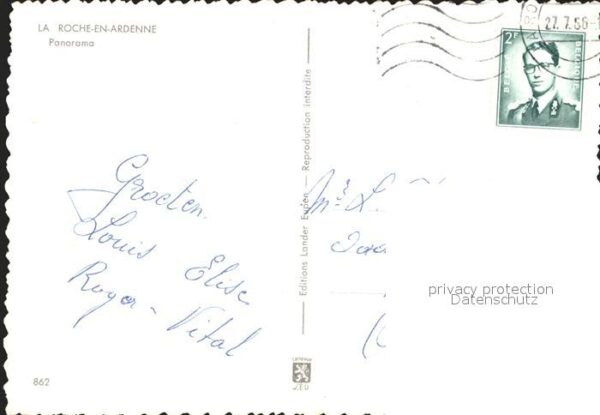 LA ROCHE-EN-ARDENNE
Panorama
27. 7. 56
2F
BELGIE
BELGIQUE
Groeten
Louis Elise
Roger - Vital
Editions Lander Eupen — Reproduction interdite
Mr L
privacy protection
Datenschutz
862
J.E.U.